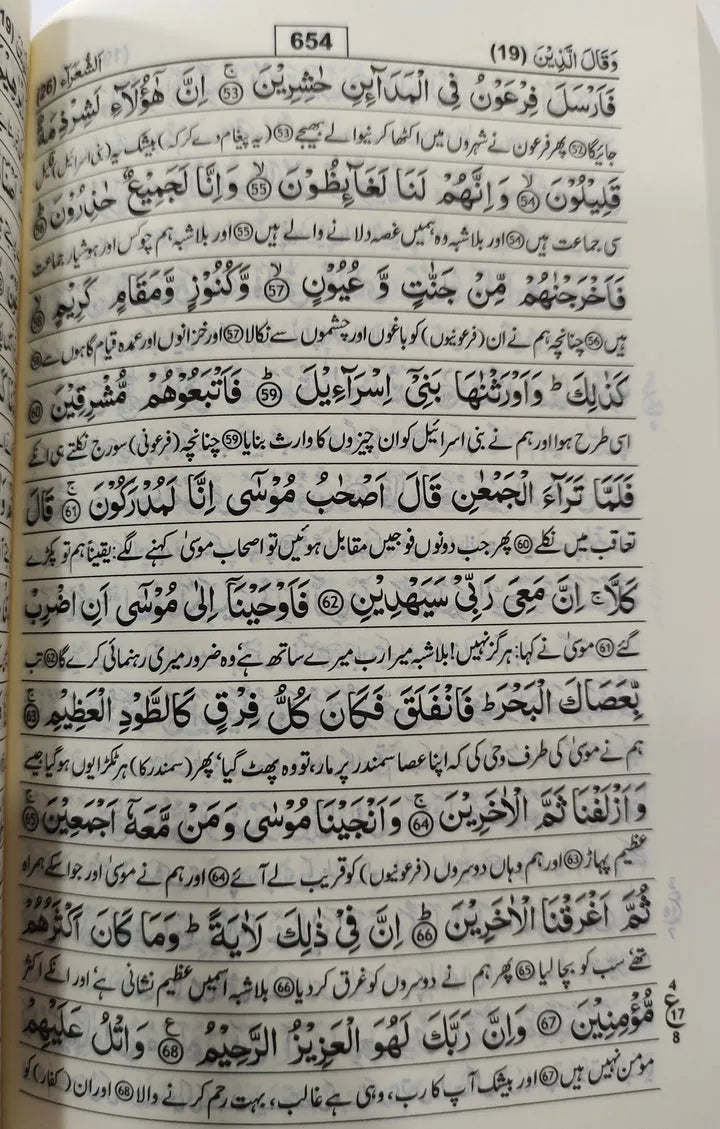 وَقَالَ الَّذِیْنَ (19) 654 اَلشُّعَرَآء (26)
فَاَرْسَلَ فِرْعَوْنُ فِی الْمَدَآىِٕنِ حٰشِرِیْنَ ۚ 53 اِنَّ هٰۤؤُلَآءِ لَشِرْذِمَةٌ
جایےگا 52 پھر فرعون نے شہروں میں اکٹھا کرنیوالے بھیجے 53 (یہ پیغام دے کر کہ) بیشک یہ (بنی اسرائیل) قلیل
قَلِیْلُوْنَ ۙ 54 وَاِنَّهُمْ لَنَا لَغَآىِٕظُوْنَ ۙ 55 وَاِنَّا لَجَمِیْعٌ حٰذِرُوْنَ ؕ 56
سی جماعت ہیں 54 اور بلاشبہ وہ ہمیں غصہ دلانے والے ہیں 55 اور بلاشبہ ہم چوکس اور ہوشیار جماعت
فَاَخْرَجْنٰهُمْ مِّنْ جَنّٰتٍ وَّ عُیُوْنٍ ۙ 57 وَّكُنُوْزٍ وَّمَقَامٍ كَرِیْمٍ ۙ 58
ہیں 56 چنانچہ ہم نے ان (فرعونیوں) کو باغوں اور چشموں سے نکالا 57 اور خزانوں اور عمدہ قیام گاہوں سے 58
كَذٰلِكَ ؕ وَاَوْرَثْنٰهَا بَنِیْۤ اِسْرَآءِیْلَ ؕ 59 فَاَتْبَعُوْهُمْ مُّشْرِقِیْنَ 60
اسی طرح ہوا اور ہم نے بنی اسرائیل کو ان چیزوں کا وارث بنایا 59 چنانچہ (فرعونی) سورج نکلتے ہی انکے
فَلَمَّا تَرَآءَ الْجَمْعٰنِ قَالَ اَصْحٰبُ مُوْسٰۤی اِنَّا لَمُدْرَكُوْنَ ۚ 61 قَالَ
تعاقب میں نکلے 60 پھر جب دونوں فوجیں مقابل ہوئیں تو اصحاب موسیٰ کہنے لگے: یقیناً ہم تو پکڑے
كَلَّا ۚ اِنَّ مَعِیَ رَبِّیْ سَیَهْدِیْنِ 62 فَاَوْحَیْنَاۤ اِلٰی مُوْسٰۤی اَنِ اضْرِبْ
گئے 61 موسیٰ نے کہا: ہرگز نہیں! بلاشبہ میرا رب میرے ساتھ ہے، وہ ضرور میری رہنمائی کرے گا 62 تب
بِّعَصَاكَ الْبَحْرَ ؕ فَانْفَلَقَ فَكَانَ كُلُّ فِرْقٍ كَالطَّوْدِ الْعَظِیْمِ ۚ 63
ہم نے موسیٰ کی طرف وحی کی کہ اپنا عصا سمندر پر مار، تو وہ پھٹ گیا، پھر (سمندر کا) ہر ٹکڑا یوں ہو گیا جیسے
وَ اَزْلَفْنَا ثَمَّ الْاٰخَرِیْنَ ۚ 64 وَاَنْجَیْنَا مُوْسٰی وَمَنْ مَّعَهٗۤ اَجْمَعِیْنَ ۚ 65
عظیم پہاڑ 63 اور ہم وہاں دوسروں (فرعونیوں) کو قریب لے آئے 64 اور ہم نے موسیٰ اور جو اسکے ہمراہ
ثُمَّ اَغْرَقْنَا الْاٰخَرِیْنَ ؕ 66 اِنَّ فِیْ ذٰلِكَ لَاٰیَةً ؕ وَمَا كَانَ اَكْثَرُهُمْ
تھے سب کو بچا لیا 65 پھر ہم نے دوسروں کو غرق کر دیا 66 بلاشبہ اسمیں عظیم نشانی ہے، اور انکے اکثر
مُّؤْمِنِیْنَ 67 وَاِنَّ رَبَّكَ لَهُوَ الْعَزِیْزُ الرَّحِیْمُ ۧ 68 وَاتْلُ عَلَیْهِمْ
4 ع 17 8
مومن نہیں ہیں 67 اور بیشک آپ کا رب، وہی ہے غالب، بہت رحم کرنے والا 68 اور ان (کفار) کو